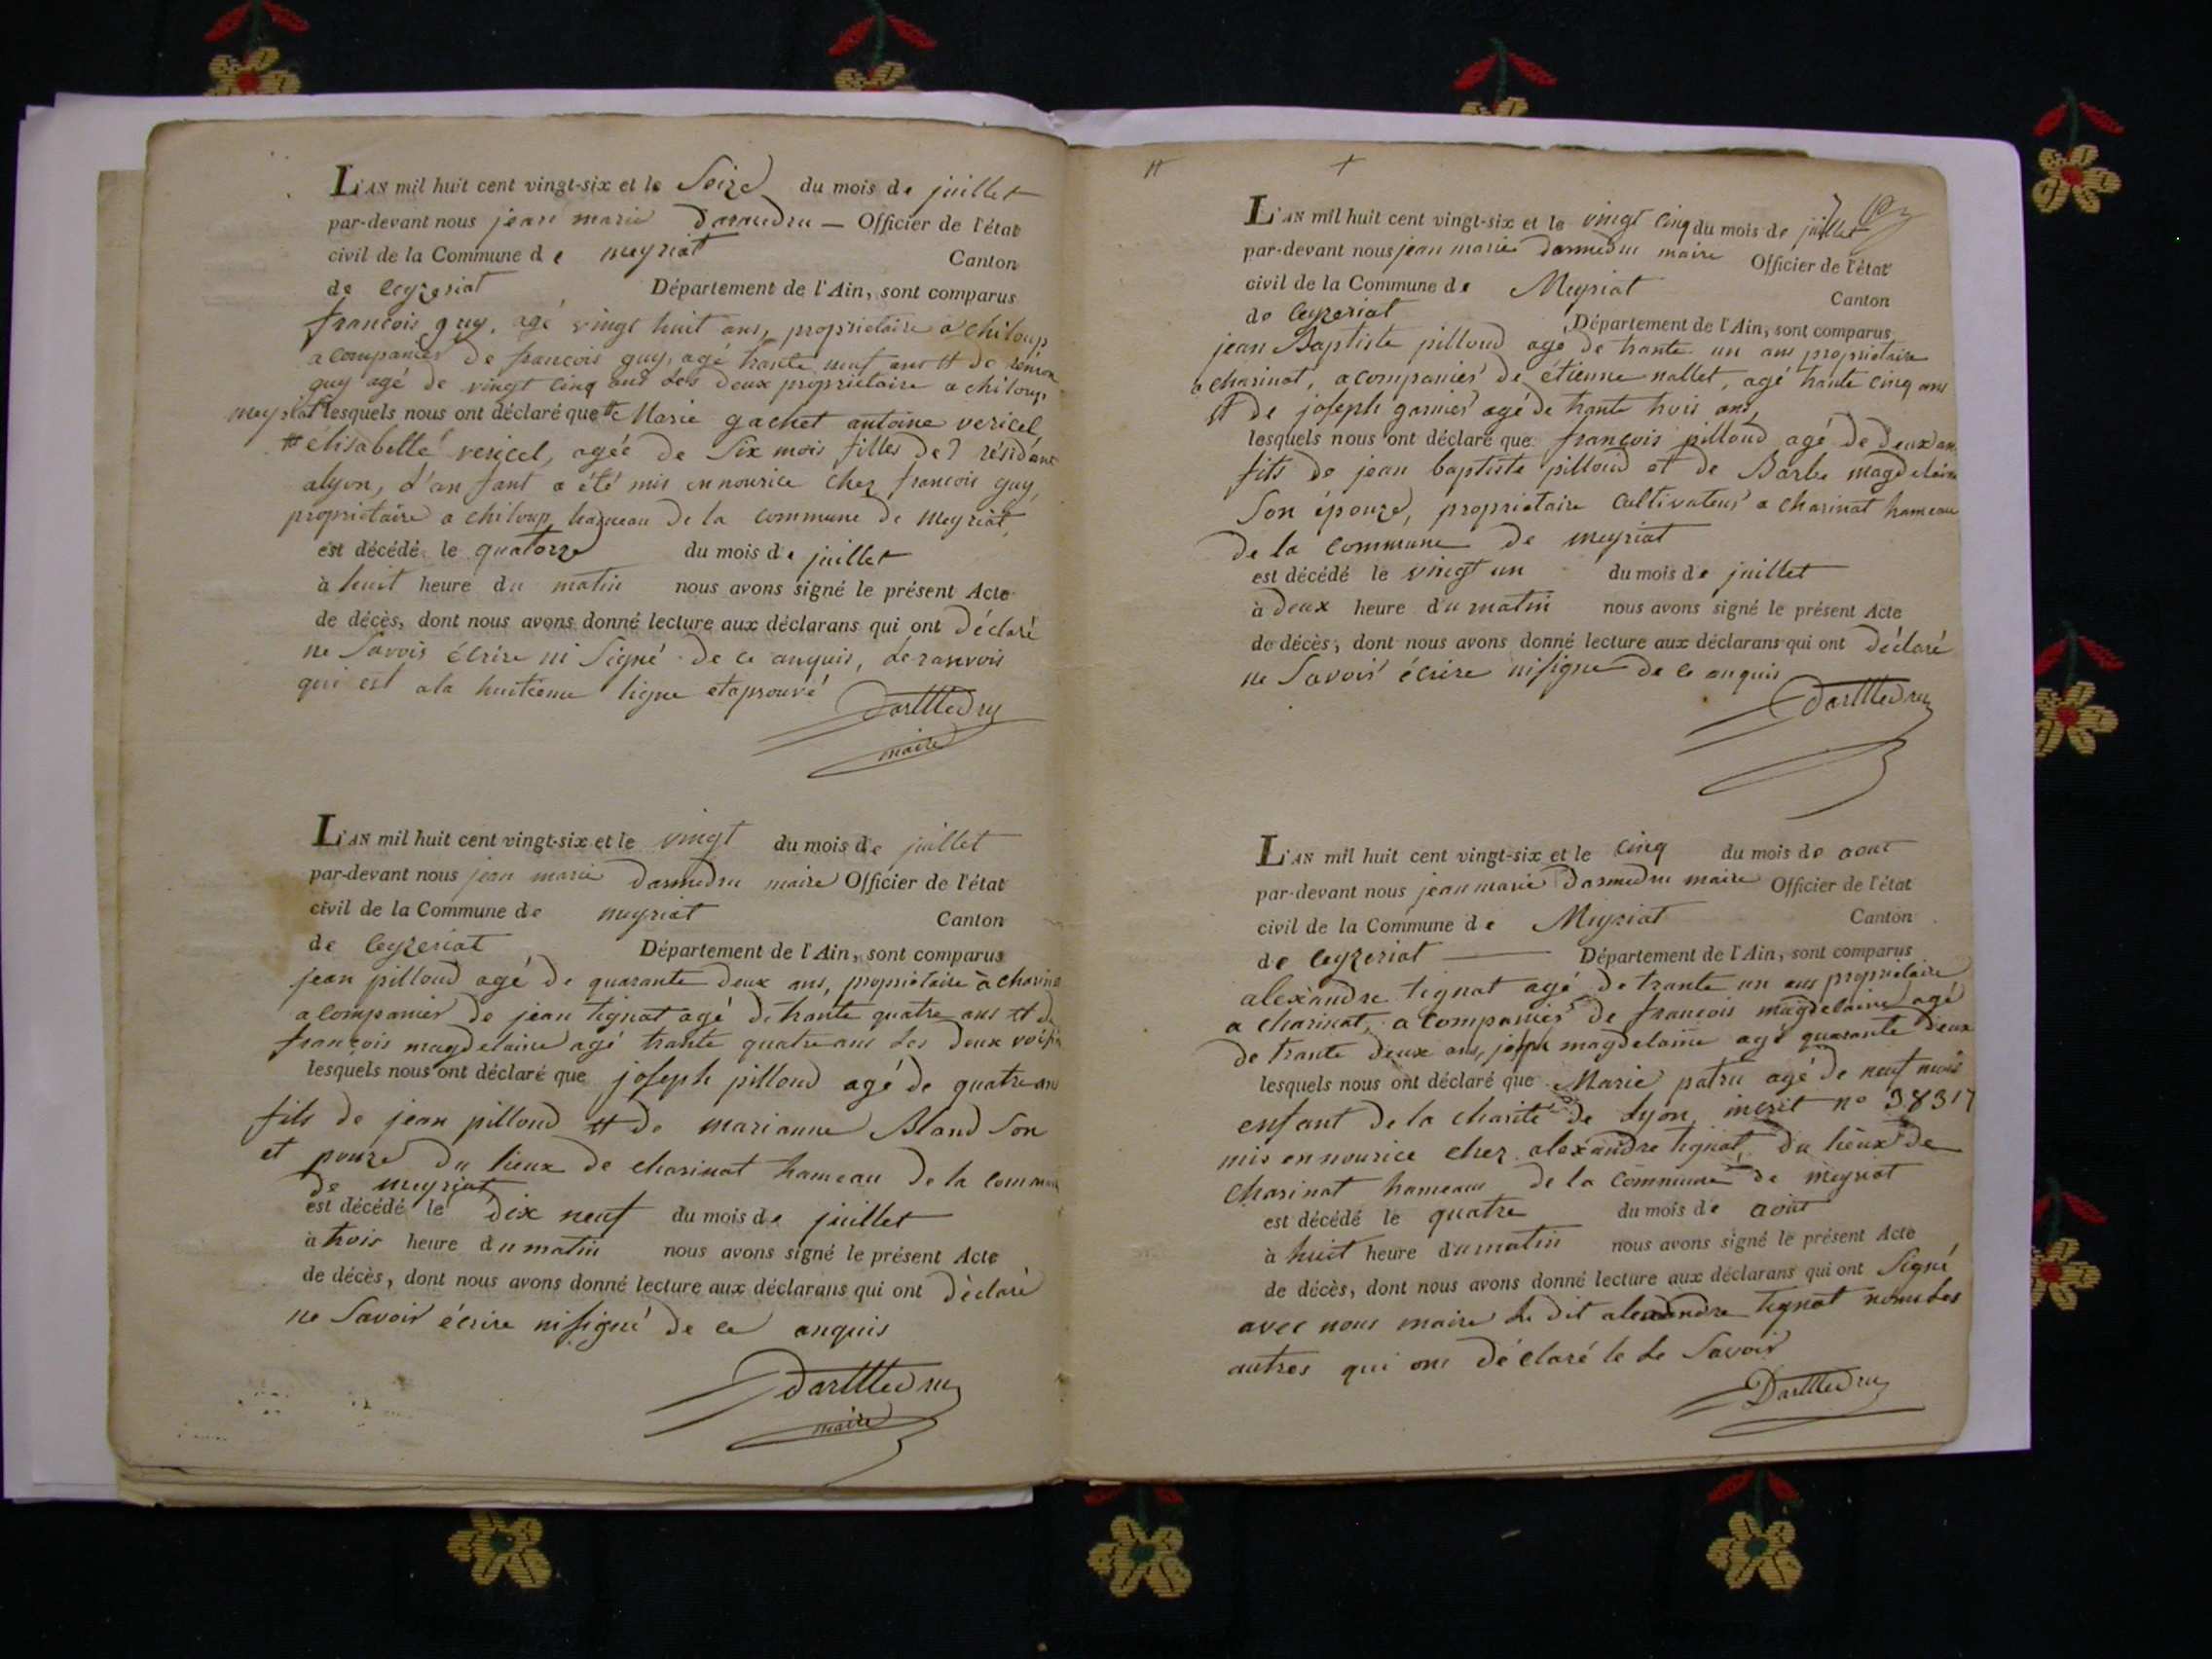 L'AN mil huit cent vingt-six et le Seize du mois de juillet
par-devant nous jean marie darmedru — Officier de l'état
civil de la Commune de meyriat Canton
de Ceyzeriat Département de l'Ain, sont comparus
francois guy, agé vingt huit ans, proprietaire a chiloup
acompanier de francois guy, agé trante neuf ans et de
guy agé de vingt cinq ans les deux proprietaire a chiloup
meyriat lesquels nous ont déclaré que Marie gachet antoine vericel
élisabelle vericel, agée de Six mois filles de résidant
alyon, l'anfant a été mis ennourice chez francois guy
proprietaire a chiloup hameau de la commune de meyriat
est décédé le quatorze du mois de juillet
à huit heure du matin nous avons signé le présent Acte
de décès, dont nous avons donné lecture aux déclarans qui ont déclaré
ne Savoir écrire ni Signé de ce anquis, le ranvois
qui est ala huitieme ligne etaprouvé
Darmedru
maire
L'AN mil huit cent vingt-six et le vingt du mois de juillet
par-devant nous jean marie Darmedru maire Officier de l'état
civil de la Commune de meyriat Canton
de Ceyzeriat Département de l'Ain, sont comparus
jean pilloud agé de quarante deux ans, proprietaire à
acompanier de jean tignat agé de trante quatre ans et de
francois magdelaine agé trante quatre ans les deux
lesquels nous ont déclaré que joseph pilloud agé de quatre ans
fils de jean pilloud et de marianne Bland Son
et pouze du lieux de charinat hameau de la
de meyriat
est décédé le dix neuf du mois de juillet
à trois heure du matin nous avons signé le présent Acte
de décès, dont nous avons donné lecture aux déclarans qui ont déclaré
ne Savoir écrire nisigné de ce anquis
Darmedru
maire
L'AN mil huit cent vingt-six et le vingt cinq du mois de juillet
par-devant nous jean marie darmedru maire Officier de l'état
civil de la Commune de Meyriat Canton
de Ceyzeriat Département de l'Ain, sont comparus
jean Baptiste pilloud agé de trante un ans proprietaire
a charinat, acompanier de étienne nallet, agé trante cinq ans
et de joseph garnier agé de trante trois ans,
lesquels nous ont déclaré que francois pilloud agé de deux ans
fils de jean baptiste pilloud et de Barbe magdelaine
Son épouze, proprietaire Cultivateur a charinat hameau
de la Commune de meyriat
est décédé le vingt un du mois de juillet
à deux heure du matin nous avons signé le présent Acte
de décès, dont nous avons donné lecture aux déclarans qui ont déclaré
ne Savoir écrire nisigne de ce anquis
Darmedru
L'AN mil huit cent vingt-six et le cinq du mois de aout
par-devant nous jean marie Darmedru maire Officier de l'état
civil de la Commune de Meyriat Canton
de Ceyzeriat Département de l'Ain, sont comparus
alexandre tignat agé de trante un ans proprietaire
a charinat, acompanier de francois magdelaine agé
de trante deux ans, joseph magdelaine agé quarante deux
lesquels nous ont déclaré que Marie patru agé de neuf mois
enfant de la charité de Lyon, inscrit n° 38317
mis ennourice chez alexandre tignat, du lieux de
charinat hameau de la Commune de meyriat
est décédé le quatre du mois de aout
à huit heure dumatin nous avons signé le présent Acte
de décès, dont nous avons donné lecture aux déclarans qui ont Signé
avec nous maire le dit alexandre tignat nom les
autres qui ont déclaré le le Savoir
Darmedru